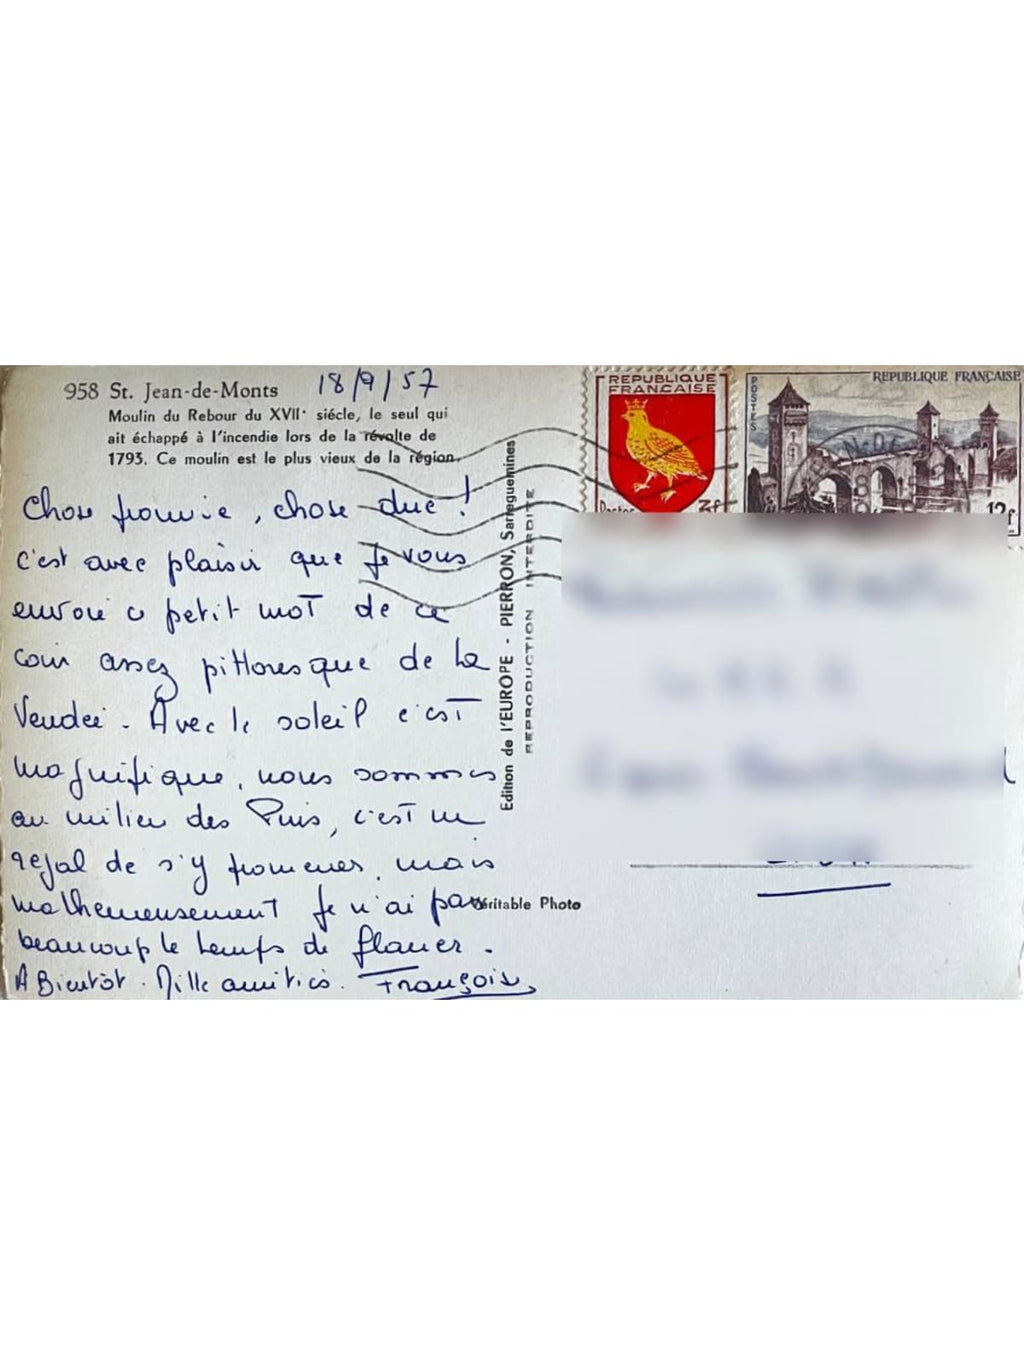 958 St. Jean-de-Monts 18/9/57
Moulin du Rebour du XVIIe siécle, le seul qui
ait échappé à l'incendie lors de la révolte de
1793. Ce moulin est le plus vieux de la région.
Chose promise, chose due !
c'est avec plaisir que je vous
envoie ce petit mot de ce
coin assez pittoresque de la
Vendée. Avec le soleil c'est
magnifique, nous sommes
au milieu des Pins, c'est un
régal de s'y promener, mais
malheureusement je n'ai pas
beaucoup le temps de flaner.
A Bientôt. Mille amitiés. François
Edition de l'EUROPE - PIERRON, Sarreguemines
REPRODUCTION INTERDITE
Véritable Photo
REPUBLIQUE
FRANÇAISE
Postes 3f
POSTES
REPUBLIQUE FRANÇAISE
12f